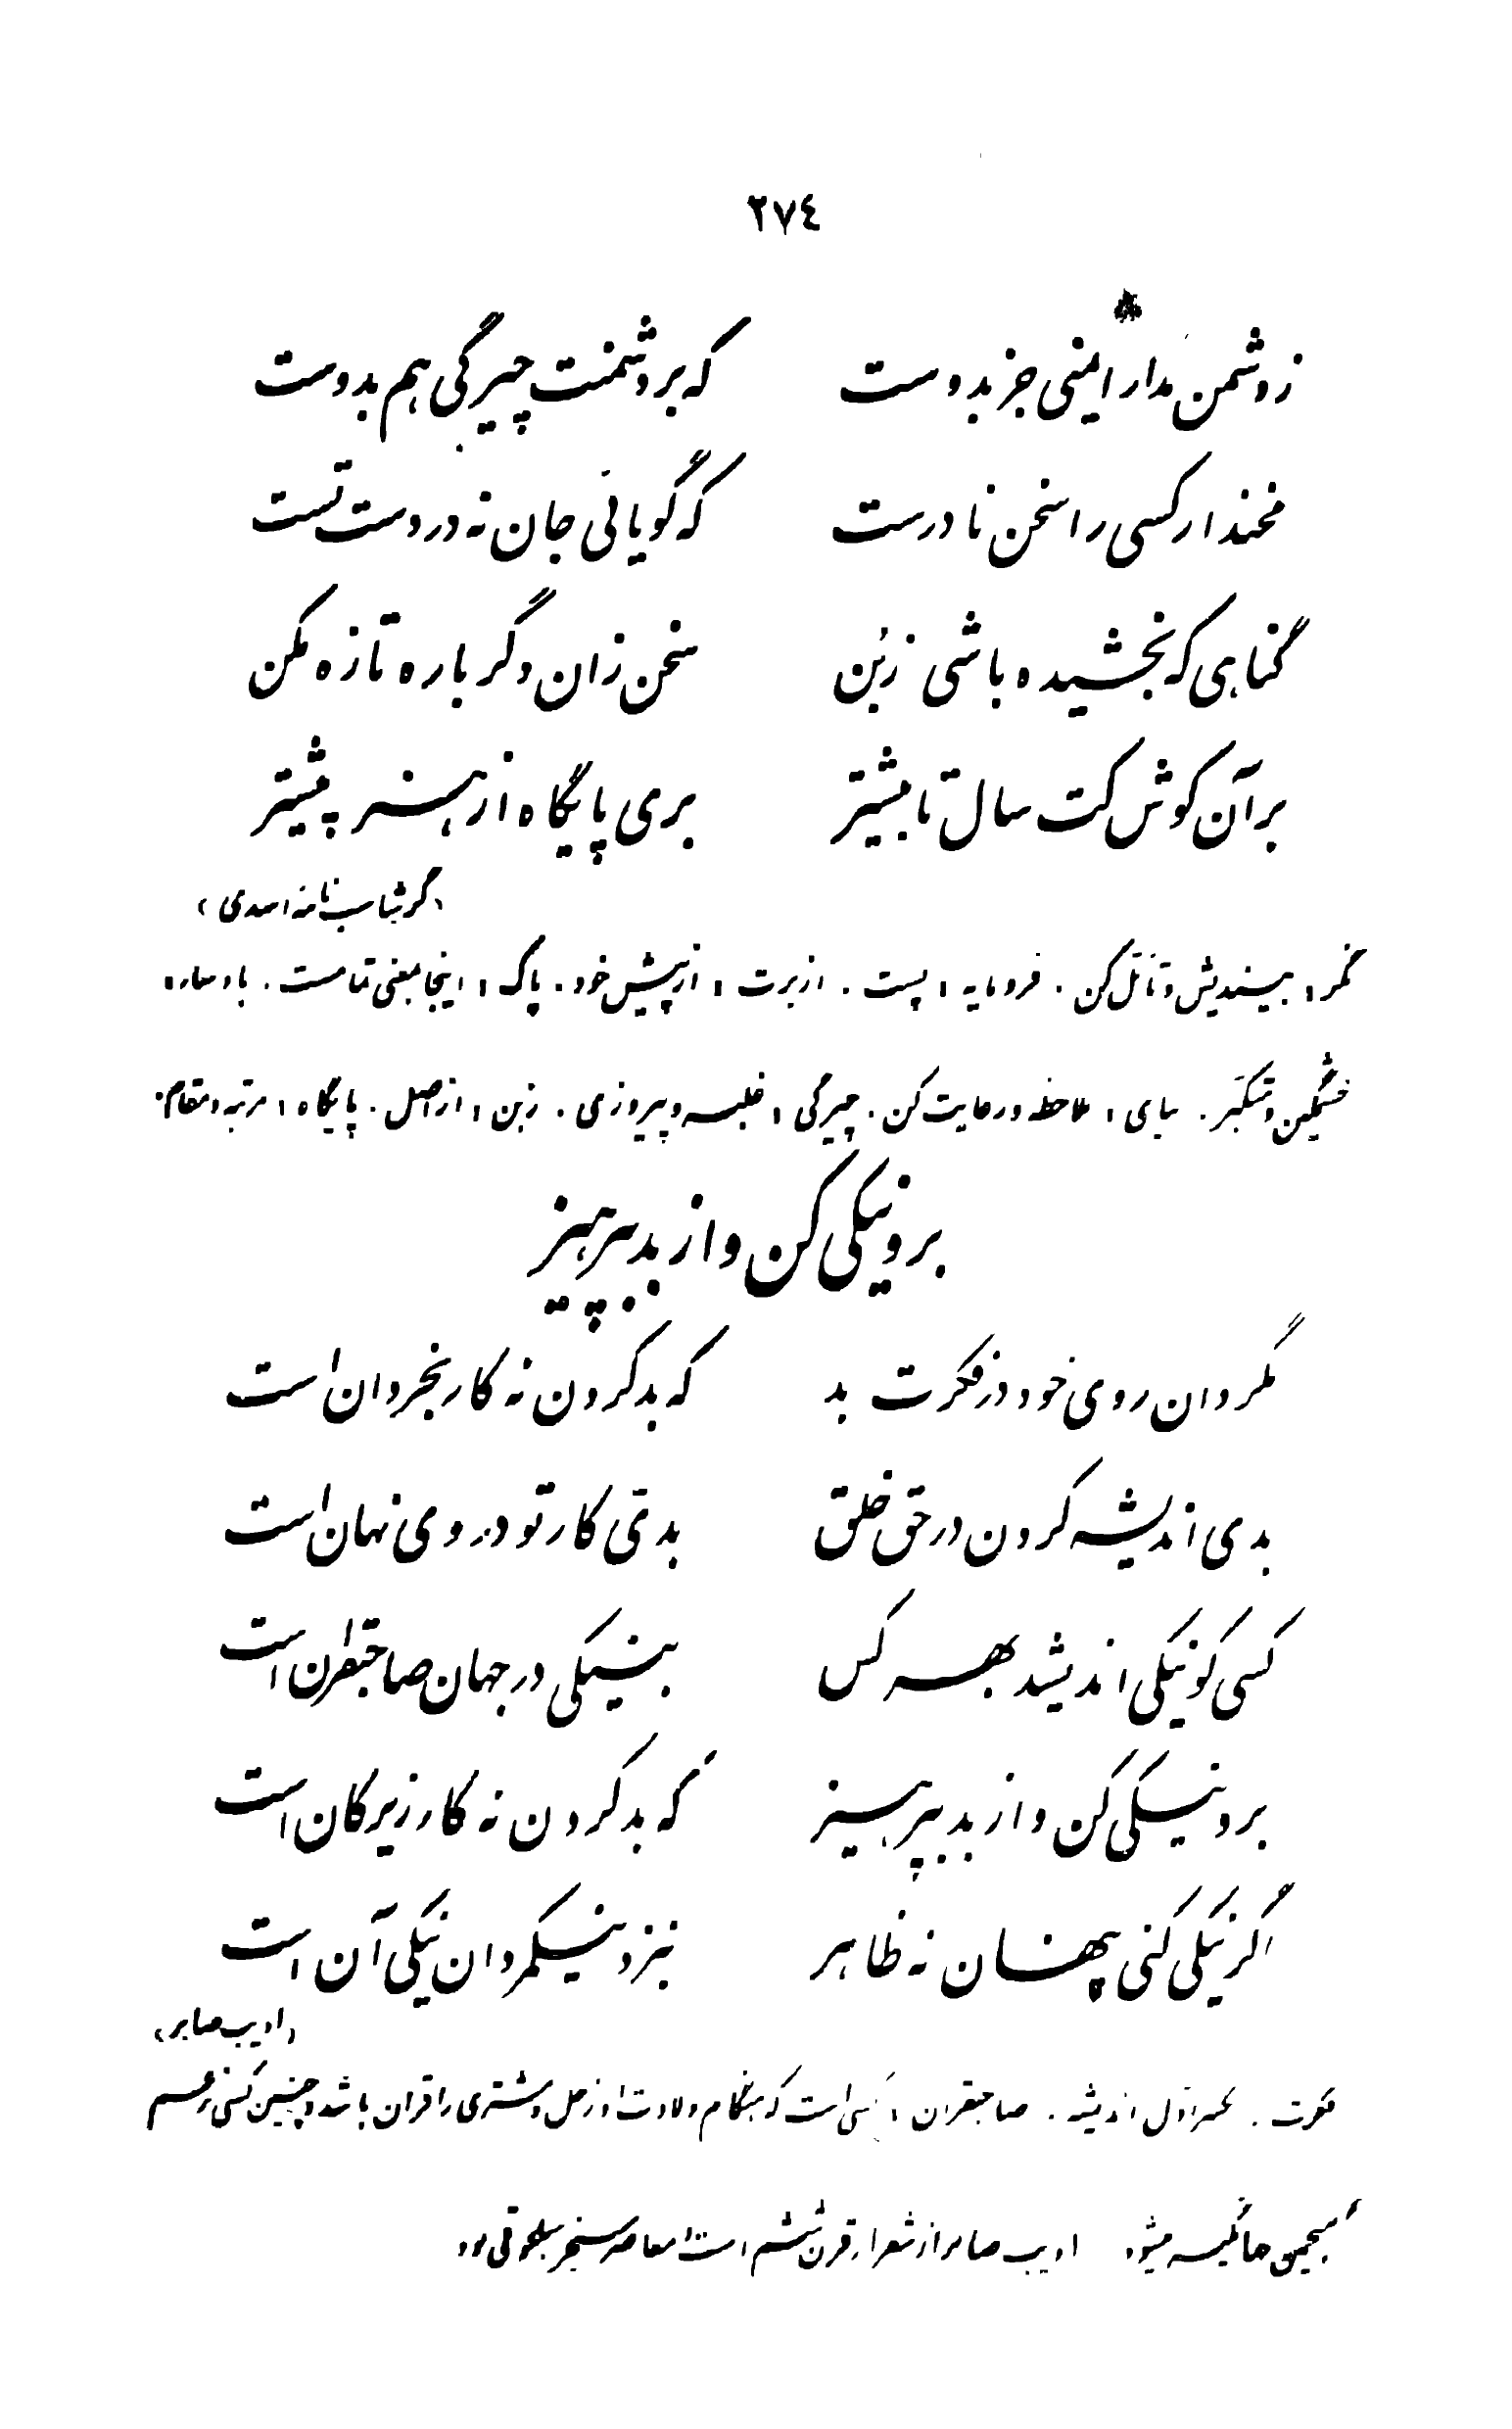 ٢٧٤
ز دشمن مدار ایمنی جز بدوست    که بر دشمنت چیرگی هم بدوست
مخند ار کسی را سخن نادرست    که گویائی جان نه در دست تست
گناهی که بخشیده باشی زبُن    سخن زان دگر باره تازه مکن
بر آن کوش کت سال تا بیشتر    بری پایگاه از هنر پیشتر
(گرشاسب نامه اسدی)
نگر: بیندیش و تأمّل کن. فرومایه: پست. از برت: از پیش خود. پاک: اینجا بمعنی تمامست. بادسار:
خشمگین و متکبّر. بپای: ملاحظه و رعایت کن. چیرگی: غلبه و پیروزی. زبن: از اصل. پایگاه: مرتبه و مقام.
برو نیکی کن و از بد بپرهیز
مگردان روی خود در فکرت بد    که بد کردن نه کار بخردان است
بدی اندیشه کردن در حق خلق    بدیّ کار تو در وی نهان است
کسی کو نیکی اندیشد بهمه کس    بنیکی در جهان صاحبقران است
برو نیکی کن و از بد بپرهیز    که بد کردن نه کار زیرکان است
اگر نیکی کنی پنهان نه ظاهر    بنزد نیکمردان نیکی آن است
(ادیب صابر)
فکرت. بکسر اوّل اندیشه. صاحبقران: کسی است که هنگام ولادت او زحل و مشتری را قران باشد و چنین کسی بزعم
منجمین جهانگیر میشود    ادیب صابر از شعرا، قرن ششم است و معاصر سنجر سلجوقی بود